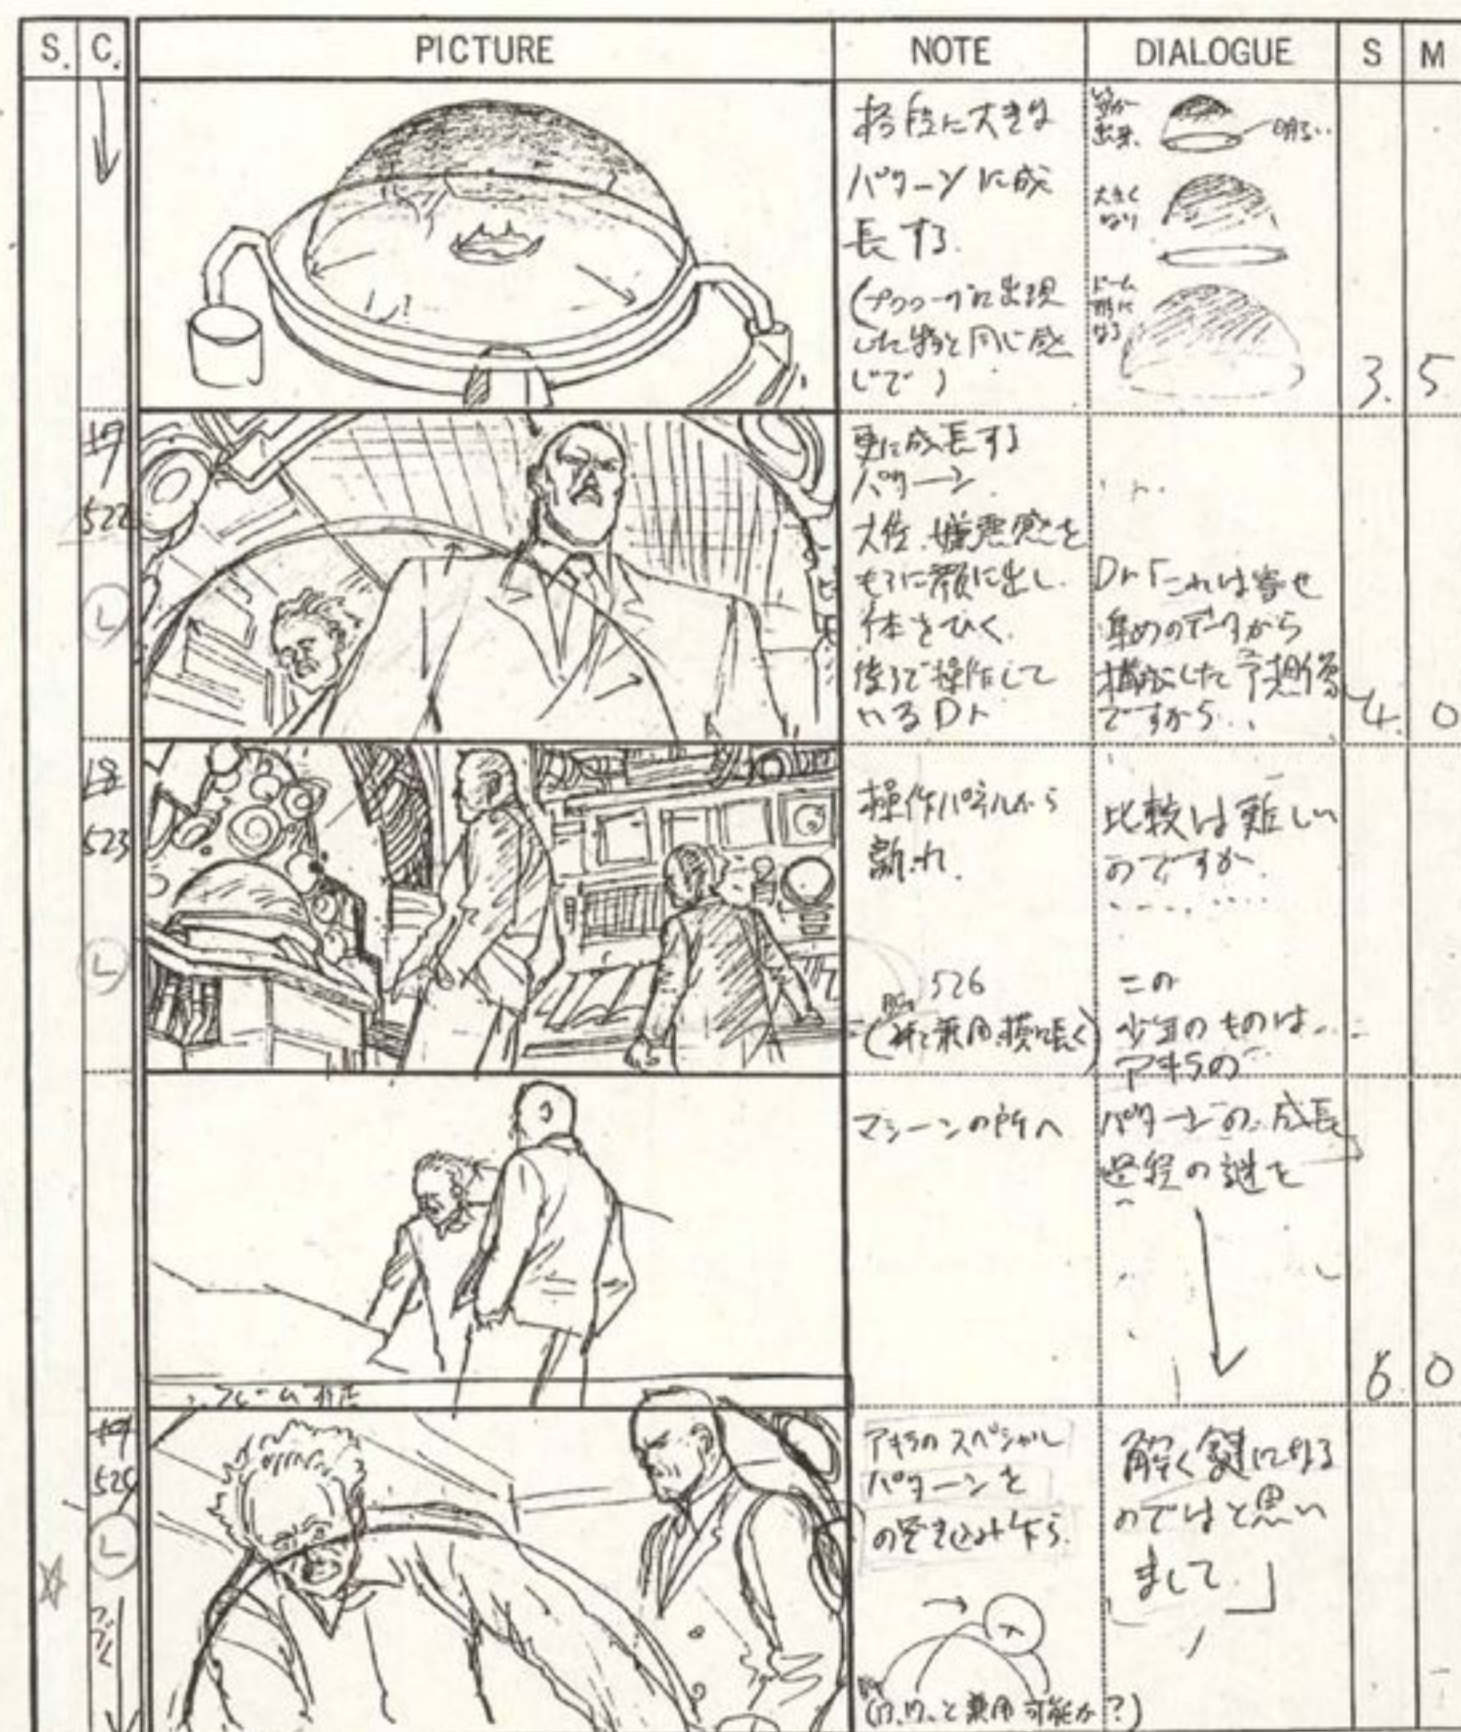 S. C. PICTURE NOTE DIALOGUE S M
格段に大きな
パターンに成
長する.
出現
した
と同じ感
じで)
出来.
明るい
大きく
なり
ドーム
形に
なる
3. 5
522
L
更に成長する
パターン.
大佐.嫌悪感を
もろに顔に出し.
体をひく.
後ろで操作して
いるDr
Dr「これは寄せ
集めのデータから
構成した予想像
ですから...
4. 0
18
523
L
操作パネルから
離れ.
526
兼用.横に長く)
比較は難しい
のですが
......
この
少年のものは...
アキラの
マシーンの所へ
パターンの成長
過程の謎を
フレーム
6. 0
L
つづく
アキラのスペシャル
パターンを
のぞき込み乍ら.
(と兼用可能か?)
解く鍵になる
のではと思い
まして.」